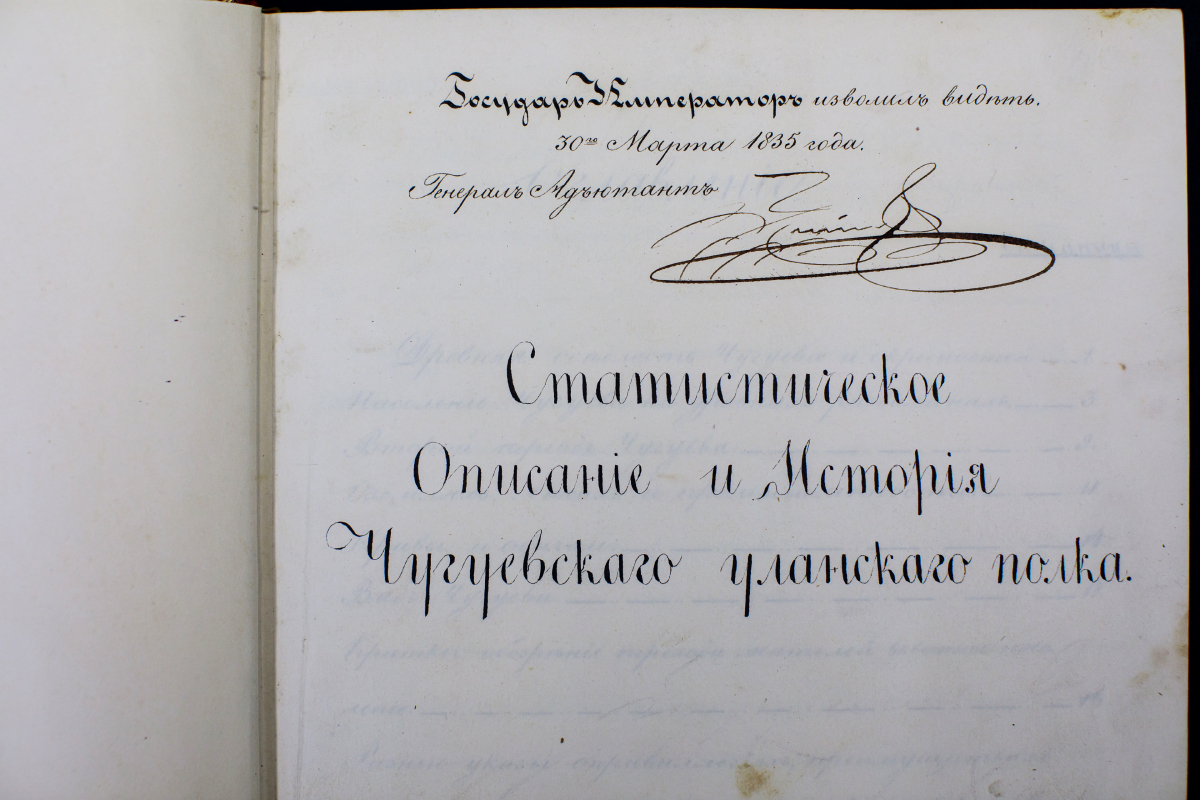 Государь Императоръ изволилъ видѣть.
30го Марта 1835 года.
Генералъ Адъютантъ
Статистическое
Описаніе и Исторія
Чугуевскаго уланскаго полка.